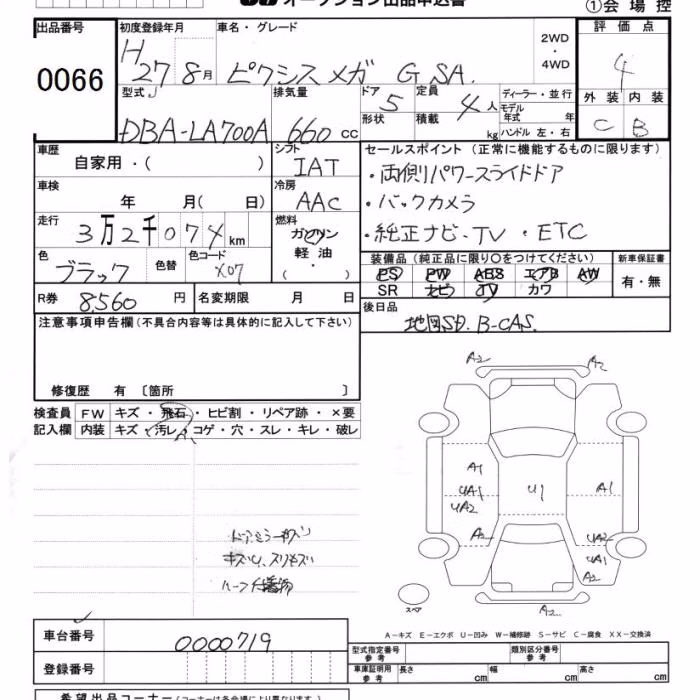 オークション出品申込書
①会場控
出品番号 初度登録年月 車名・グレード 評価点
0066 H27 8月 ピクシスメガ G SA. 2WD・4WD 4
型式 排気量 ドア 定員 ディーラー・並行 外装 内装
DBA-LA700A 660cc 5 4人 モデル年式 年 C B
形状 積載 kg ハンドル 左・右
車歴 シフト セールスポイント(正常に機能するものに限ります)
自家用・( ) IAT ・両側パワースライドドア
車検 冷房 ・バックカメラ
年 月( 日) AAC
走行 燃料 ・純正ナビ・TV ・ETC
3万2千074km ガソリン
軽油
・
色 色替 色コード 装備品(純正品に限り○をつけてください) 新車保証書
ブラック X07 PS PW ABS エアB AW 有・無
SR ナビ TV カワ
R券 8,560円 名変期限 月 日 後日品
地図SD. B-CAS.
注意事項申告欄(不具合内容等は具体的に記入して下さい)
修復歴 有 〔箇所 〕
検査員 FW キズ・飛石・ヒビ割・リペア跡・×要
記入欄 内装 キズ・汚レ・コゲ・穴・スレ・キレ・破レ
A2 A2
A1 U1 A1
UA1
UA2
A2 UA2
UA1
A2
スペア A2
A-キズ E-エクボ U-凹み W-補修跡 S-サビ C-腐食 XX-交換済
車台番号 0000719
型式指定番号 参考 類別区分番号 参考
登録番号 車庫証明用 参考 長さ cm 幅 cm 高さ cm
希望出品コーナー(コーナーは各会場により異なります)